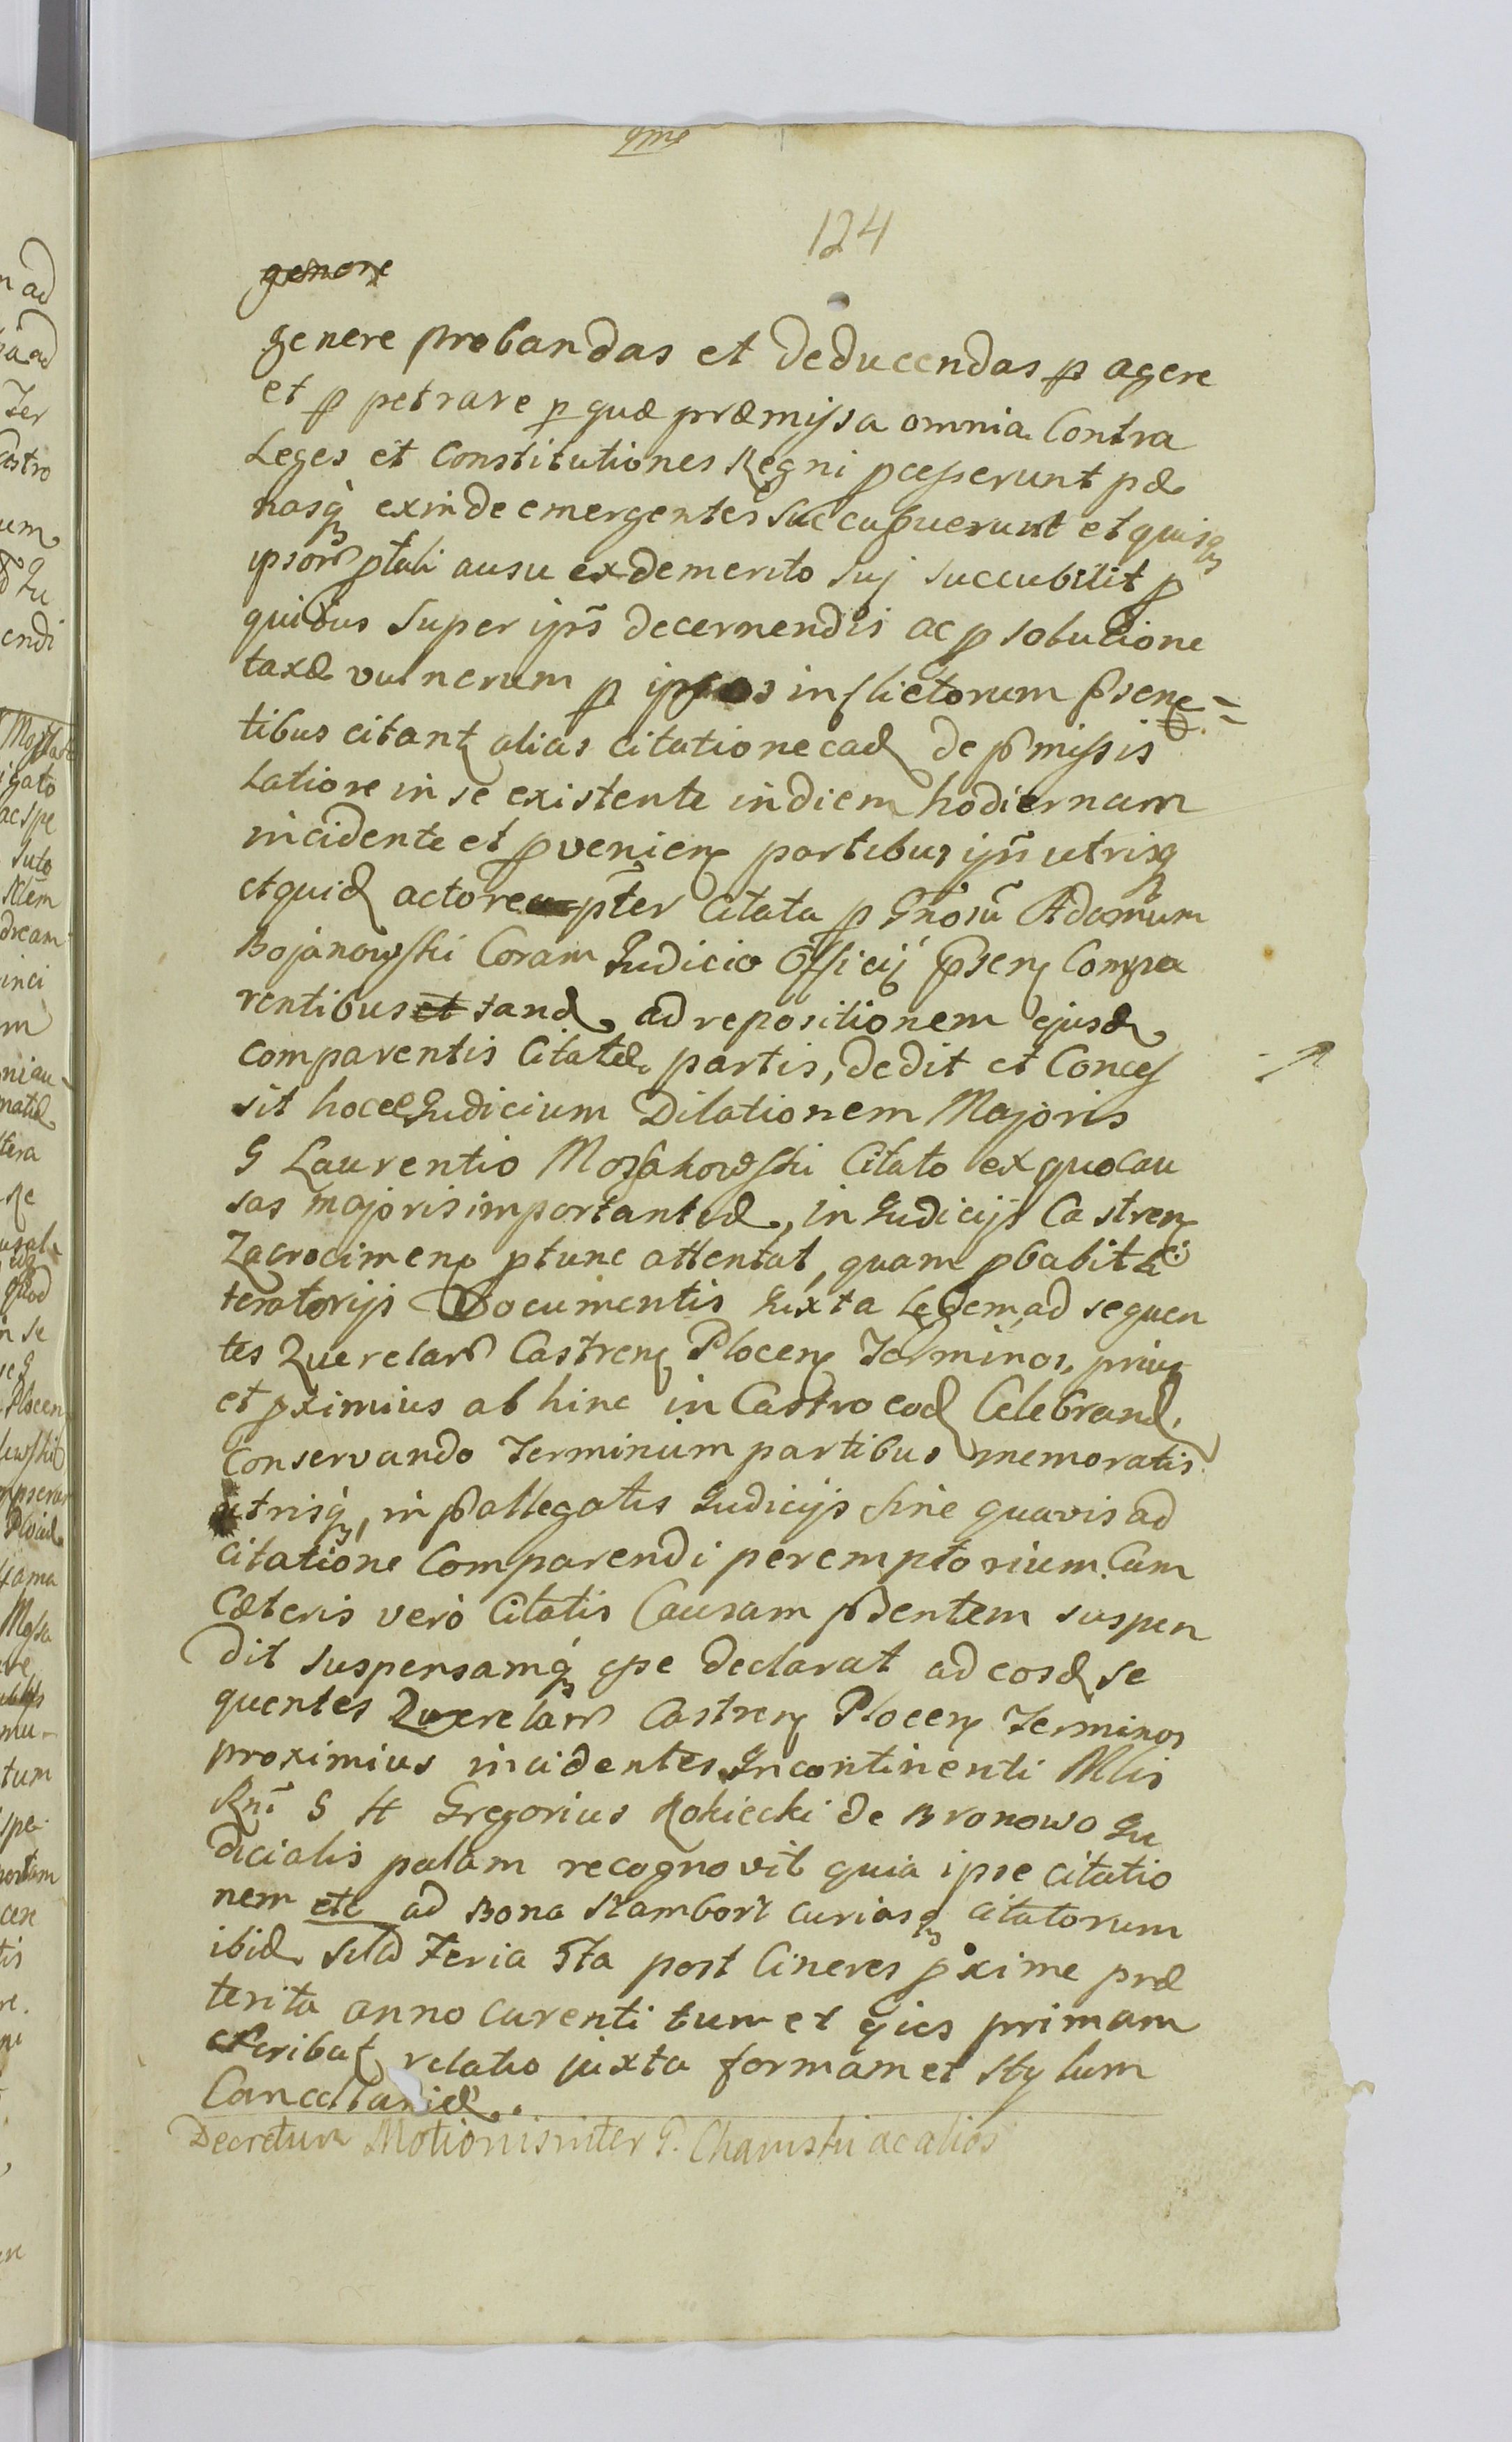 124
genere
genere probandas et deducendas p agere
et p petrare p quæ præmissa omnia Contra
Leges et Constitutiones Regni pcesserunt pæ
nasq exinde emergentes succubuerunt et quisq
ipsor ptali ausu ex demerito suj succubuit p
quibus super ijs decernendis ac p solutione
taxæ vulnerum p ipsos inflictorum psen
tibus citant alias citatione ead de pmissis
Latiore in se existente in diem hodiernam
incidente et pvenien partibus ijs utrisq
et quid actorea pter Citata p Gnosu Adamum
Bojanowski Coram Judicio Officij psen Compa
rentibus et tand ad repositionem ejusd
comparentis Citatæ partis, dedit et Conces
sit hocce Judicium Dilationem Majoris
G Laurentio Mosakowski Citato ex quo cau
sas majoris importantiæ, in Judicijs Castren
Zacrocimen ptunc attentat, quam pbabit li
teratorijs Documentis Juxta Legem ad sequen
tes Querelar Castren Plocen Terminos, prius
et pximius ab hinc in Castro eod Celebrand.
Conservando Terminum partibus memoratis
utrisq, in pallegatis Judicijs sine quavis ad
citatione Comparendi peremptorium. Cum
Cæteris vero Citatis Causam psentem suspen
dit suspensamq esse declarat ad eosd se
quentes Querelar Castren Plocen Terminos
proximius incidentes. Incontinenti Mlis
Rni S H Gregorius Rokiecki de Bronowo Ju
dicialis palam recognovit quia ipse citatio
nem etc ad Bona Rambort curiasq citatorum
ibid Feria 5ta post Cineres pxime præ
terita anno curenti tum et ejus primam
scribat relatio juxta formam et stylum
Cancellariæ.
Decretum Motionis inter G. Chamski ac alios